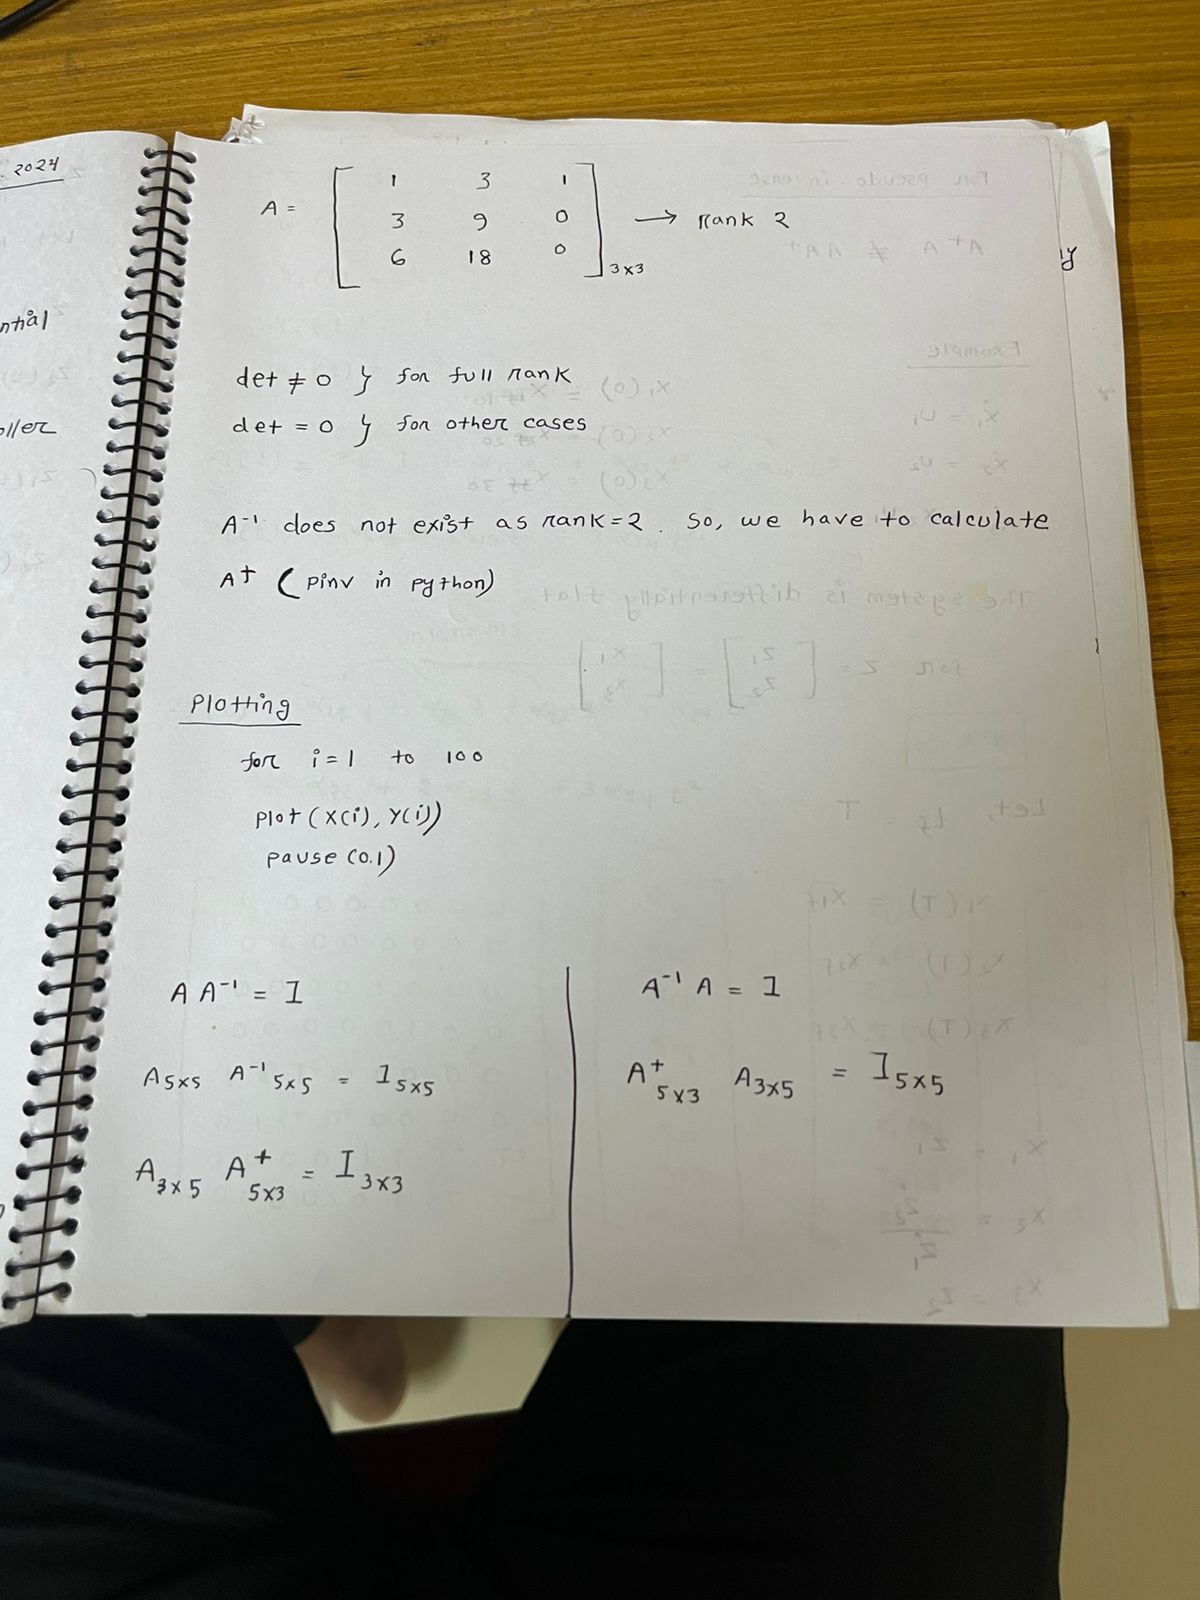 . 2024
ntial
oller
A = [ 1 3 1
3 9 0
6 18 0 ]3x3 → rank 2
det ≠ 0 } for full rank
det = 0 } for other cases
A⁻¹ does not exist as rank=2. So, we have to calculate
A† (pinv in python)
Plotting
for i = 1 to 100
plot (X(i), Y(i))
pause (0.1)
A A⁻¹ = I
A5x5 A⁻¹5x5 = I5x5
A3x5 A⁺5x3 = I3x3
A⁻¹ A = I
A⁺5x3 A3x5 = I5x5